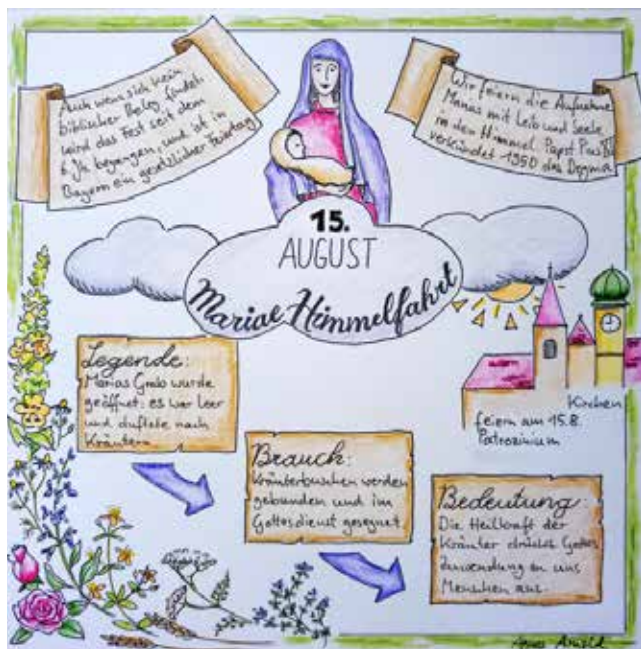 Auch wenn sich kein
biblischer Beleg findet:
wird das Fest seit dem
6. Jh. begangen, und ist in
Bayern ein gesetzlicher Feiertag
Wir feiern die Aufnahme
Marias mit Leib und Seele
in den Himmel. Papst Pius
verkündet 1950 das Dogma
15.
AUGUST
Mariae Himmelfahrt
Legende:
Marias Grab wurde
geöffnet: es war leer
und duftete nach
Kräutern
Kirchen
feiern am 15.8.
Patrozinium
Brauch:
Kräuterbuschen werden
gebunden und im
Gottesdienst gesegnet
Bedeutung:
Die Heilkraft der
Kräuter drückt Gottes
Zuwendung an uns
Menschen aus.
Arnold